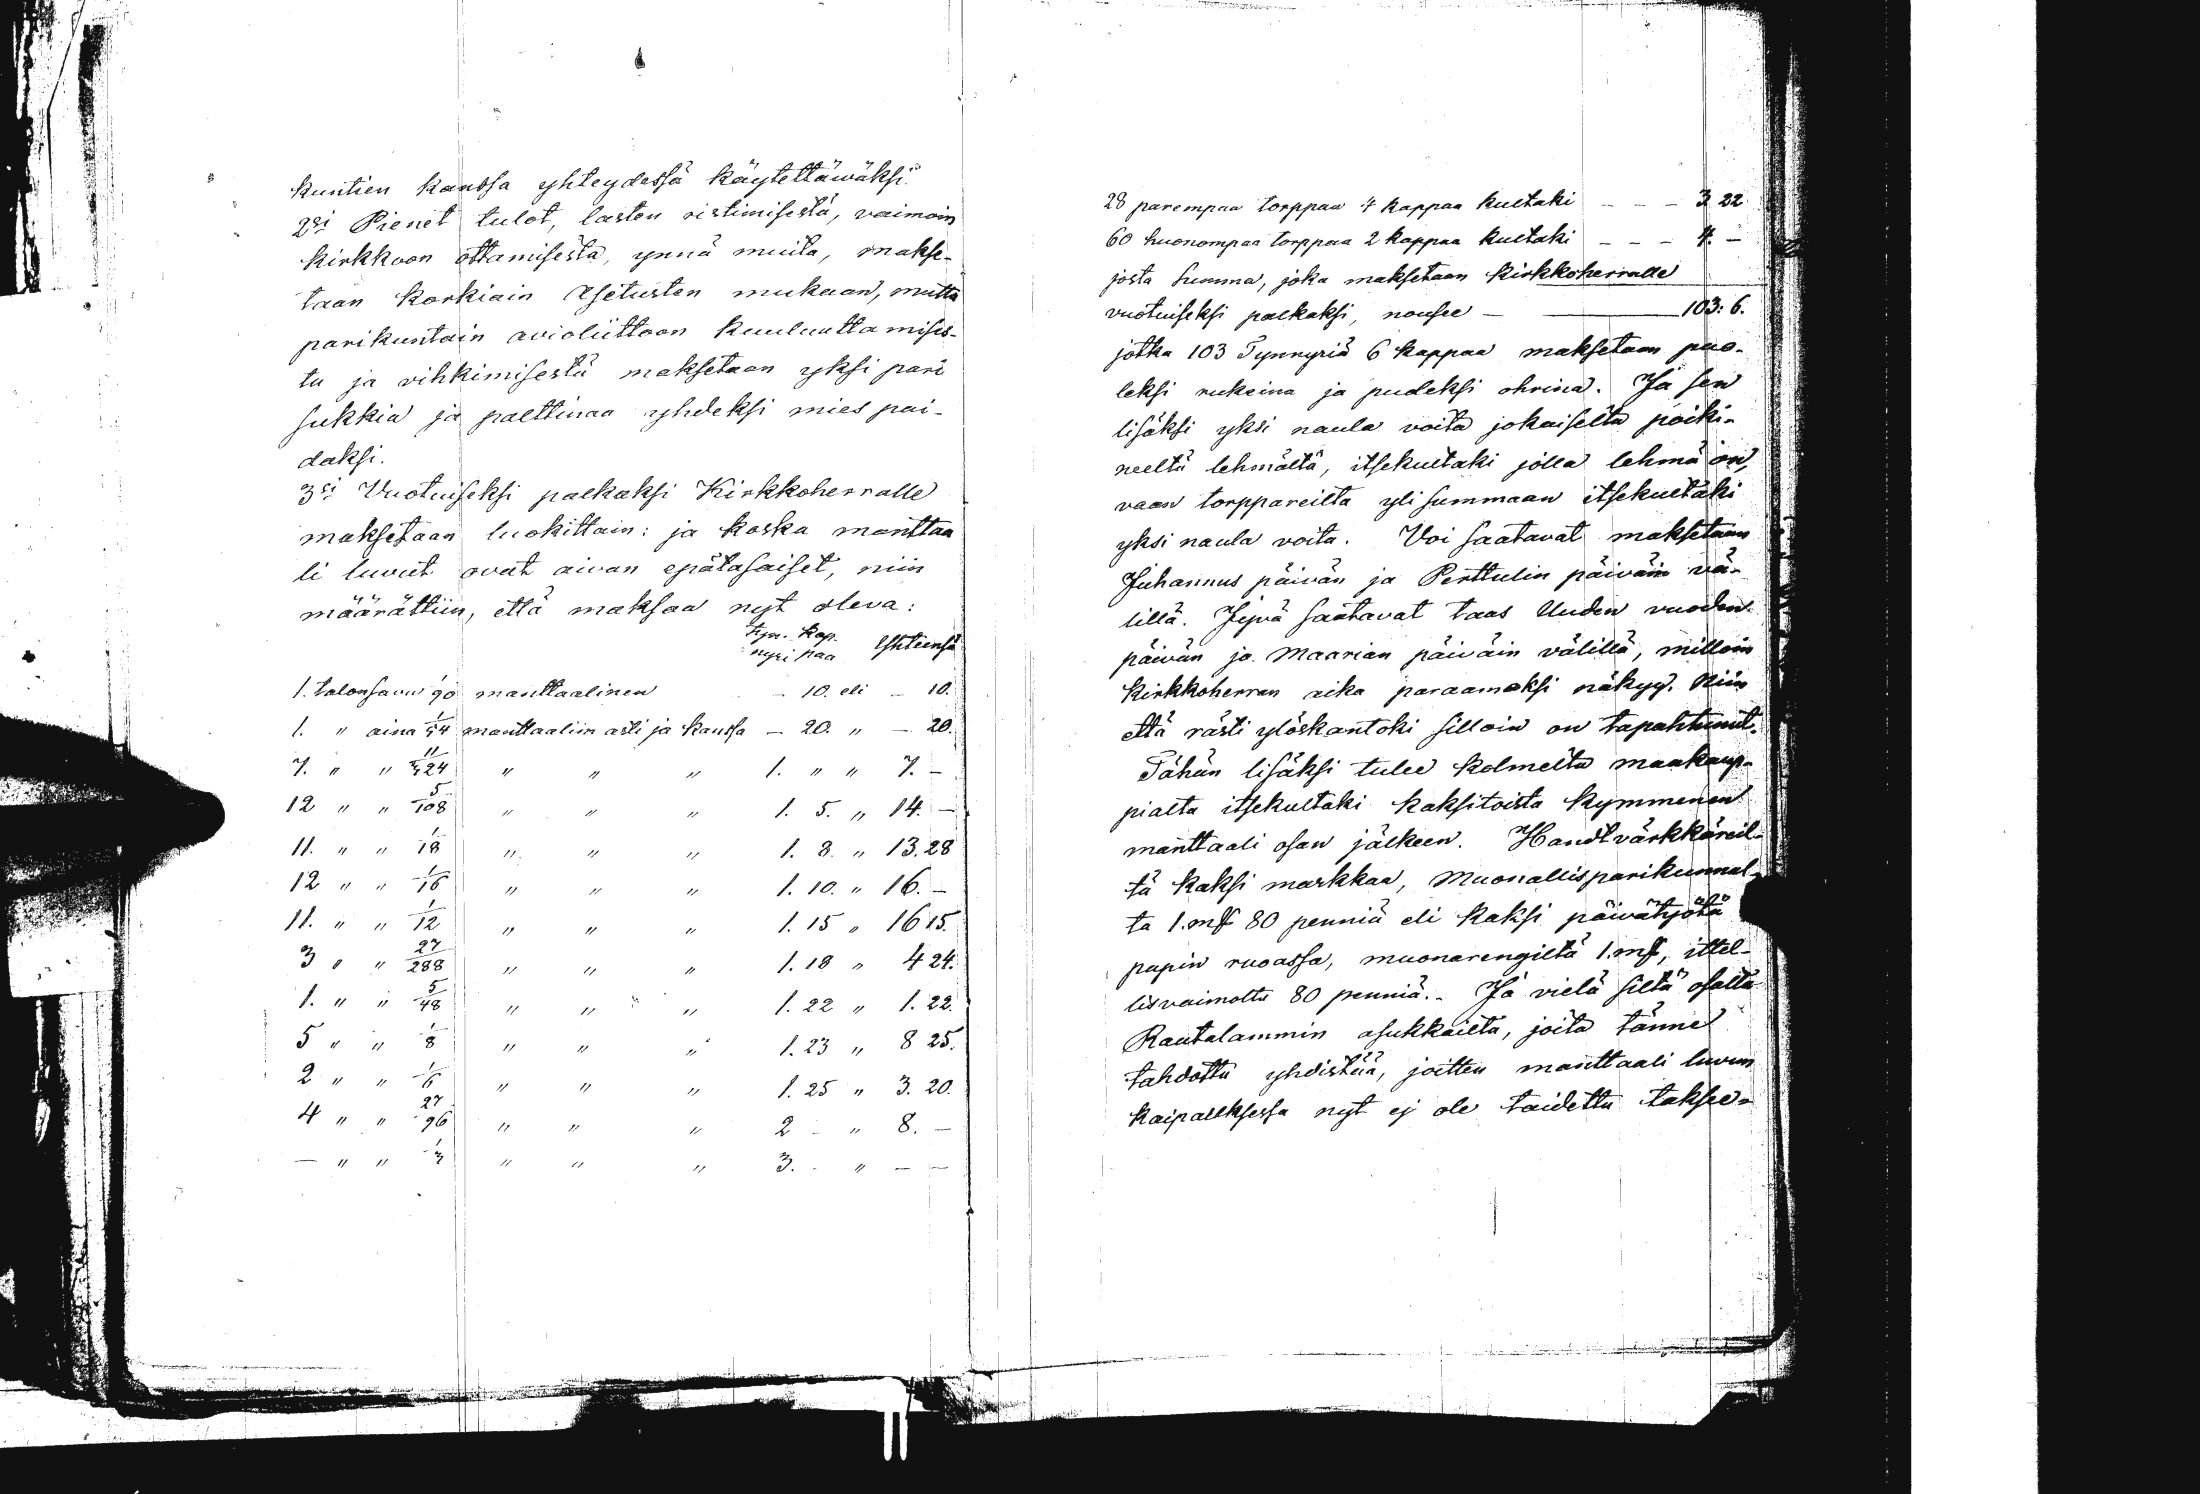 kuntien kanssa yhteydessä käytettäwäksi.
2si Pienet tulot, lasten ristimisestä, vaimoin
kirkkoon ottamisesta, ynnä muita, makse-
taan korkiain Asetusten mukaan, mutta
parikuntain avioliittoon kuuluuttamises-
ta ja vihkimisestä maksetaan yksi pari
sukkia ja palttinaa yhdeksi mies pai-
daksi.
3si Vuotuiseksi palkaksi Kirkkoherralle
maksetaan luokittain: ja koska manttaa
li luvut ovat aivan epätasaiset, niin
määrättiin, että maksaa nyt oleva:
Tyn- Kap.
nyri paa Yhteensä
1. talonsavu 1/90 manttaalinen – 10. eli – 10.
1. " aina 1/54 manttaaliin asti ja kanssa – 20. " – 20.
7. " " 11/324 " " " 1. " " 7. –
12 " " 5/108 " " " 1. 5. " 14. –
11. " " 1/18 " " " 1. 8. " 13.28
12 " " 1/16 " " " 1. 10. " 16. –
11. " " 1/12 " " " 1. 15 " 16 15.
3 " " 27/288 " " " 1. 18 " 4 24.
1. " " 5/48 " " " 1. 22 " 1. 22.
5 " " 1/8 " " " 1. 23 " 8 25.
2 " " 1/6 " " " 1. 25 " 3. 20.
4 " " 27/96 " " " 2 – " 8. –
– " " 1/3 " " " 3. – " – –
28 parempaa torppaa 4 kappaa kultaki – – – 3 22
60 huonompaa torppaa 2 kappaa kultaki – – – 4. –
josta Summa, joka maksetaan Kirkkoherralle
vuotuiseksi palkaksi, nousee – 103: 6.
jotka 103 Tynnyriä 6 kappaa maksetaan puo-
leksi rukeina ja pudeksi ohrina. Ja sen
lisäksi yksi naula voita jokaiselta poiki-
neeltä lehmältä, itsekultaki jolla lehmä on,
vaan torppareilta yli summaan itsekultaki
yksi naula voita. Voi saatavat maksetaan
Juhannus päivän ja Perttulin päiväin vä-
lillä. Jyvä saatavat taas Uuden vuoden
päivän ja Maarian päiväin välillä, milloin
Kirkkoherran aika paraamaksi näkyy. Niin
että rästi ylöskantoki silloin on tapahtunut.
Tähän lisäksi tulee kolmelta maakaup-
pialta itsekultaki kaksitoista kymmenen
manttaali osan jälkeen. Handtvärkkäreil-
tä kaksi markkaa, Muonallisparikunnal-
ta 1.mk 80 penniä eli kaksi päivätyötä
papin ruoassa, muonarengiltä 1.mk, ittel-
lisvaimolta 80 penniä.- Ja vielä siltä osalta
Rautalammin asukkailta, joita tänne
tahdottu yhdistää, joitten manttaali luvun
kaipauksessa nyt ej ole taidettu taksee-